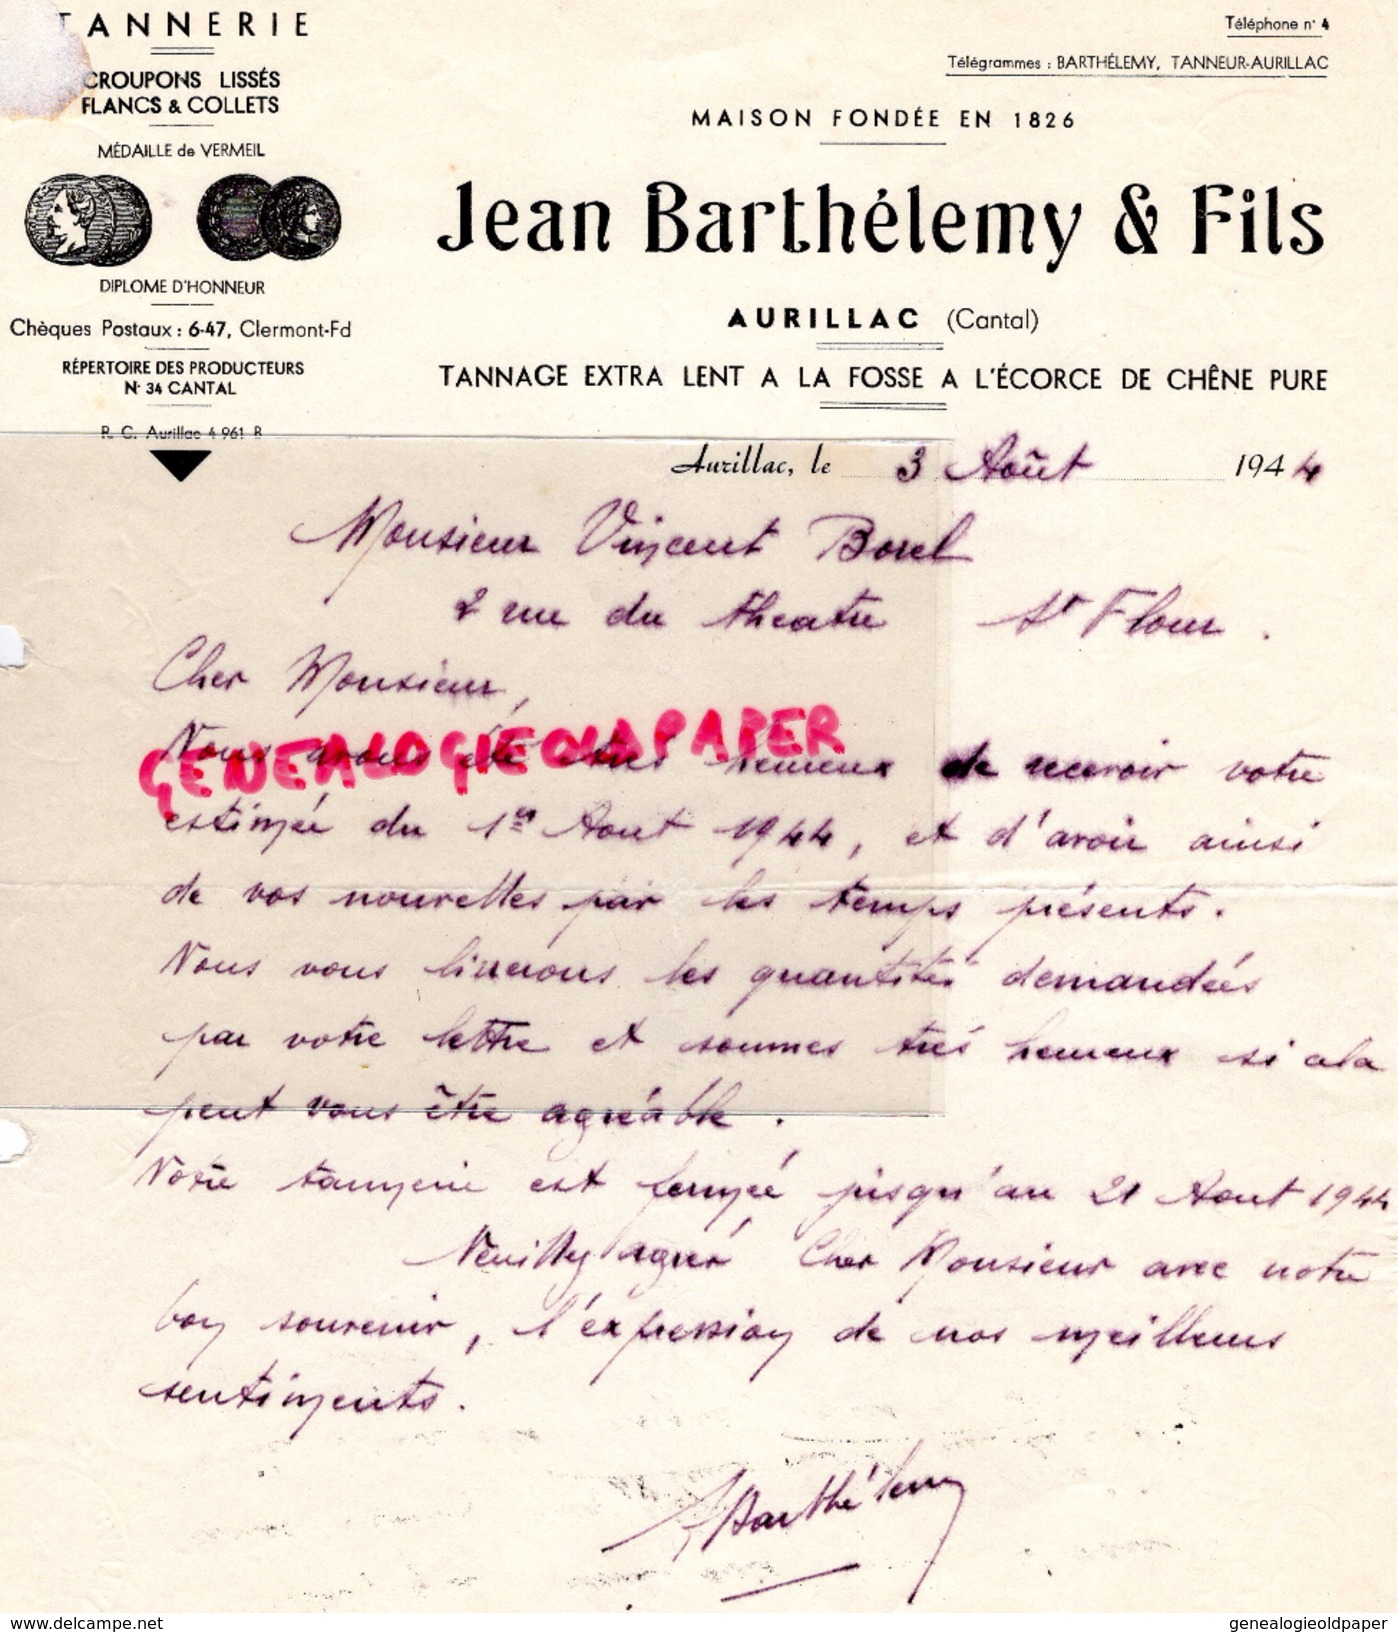 TANNERIE
CROUPONS LISSÉS
FLANCS & COLLETS
MÉDAILLE de VERMEIL
DIPLOME D'HONNEUR
Chèques Postaux : 6-47, Clermont-Fd
RÉPERTOIRE DES PRODUCTEURS
N° 34 CANTAL
R. C. Aurillac 4 961 B
Téléphone n° 4
Télégrammes : BARTHÉLEMY, TANNEUR-AURILLAC
MAISON FONDÉE EN 1826
Jean Barthélemy & Fils
AURILLAC (Cantal)
TANNAGE EXTRA LENT A LA FOSSE A L'ÉCORCE DE CHÊNE PURE
Aurillac, le 3 Août 1944
Monsieur Vincent Borel
2 rue du theatre St Flour.
Cher Monsieur,
GENEALOGIEOLDPAPER
Nous avons été très heureux de recevoir votre
estimée du 1er Aout 1944, et d'avoir ainsi
de vos nouvelles par les temps présents.
Nous vous livrerons les quantités demandées
par votre lettre et sommes très heureux si cela
peut vous être agréable.
Notre tannerie est fermée jusqu'au 21 Aout 1944
Veuillez agréer Cher Monsieur avec notre
bon souvenir, l'expression de nos meilleurs
sentiments.
Barthélemy
www.delcampe.net
genealogieoldpaper